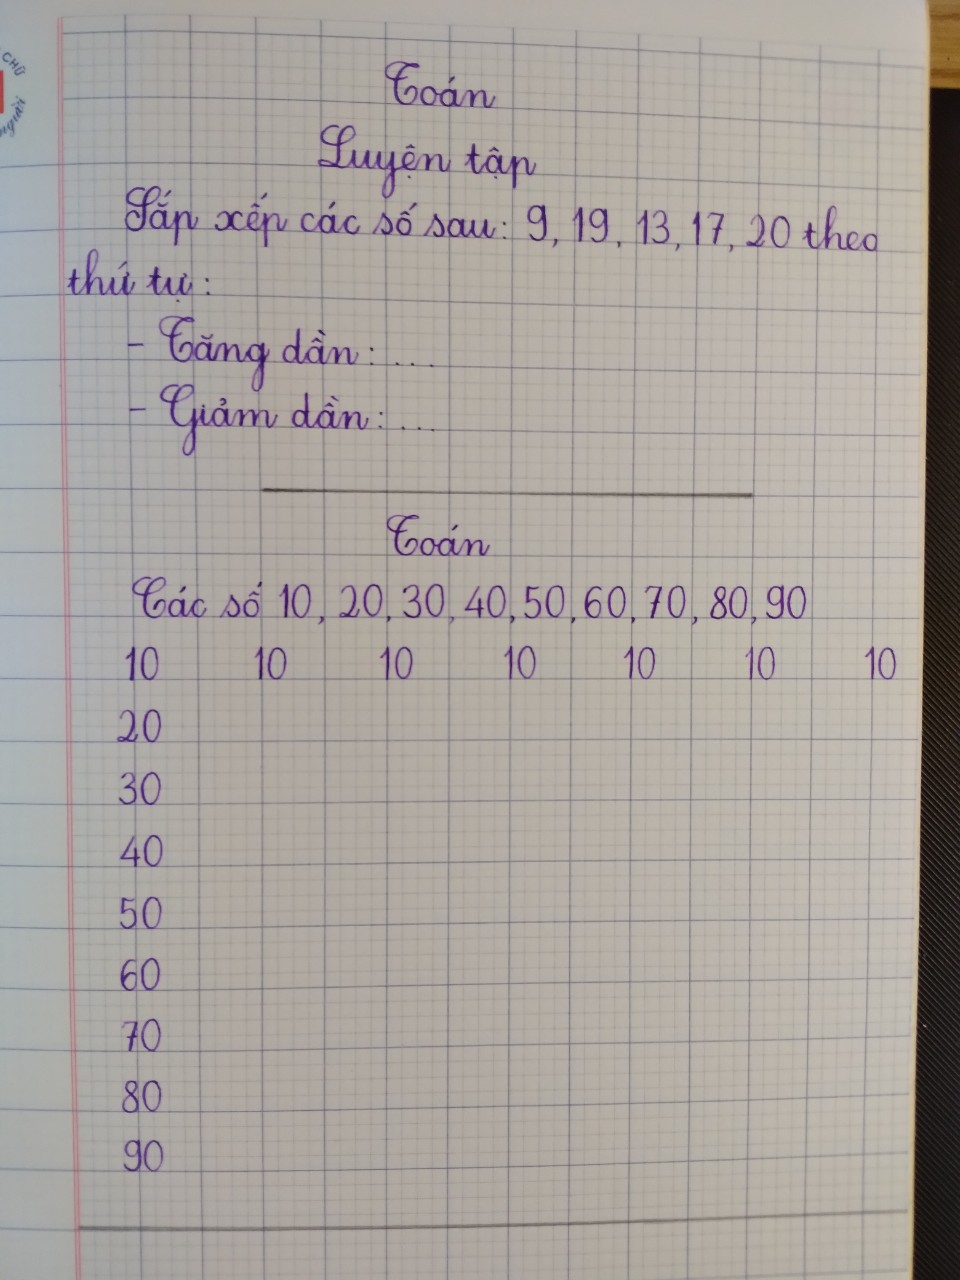 CHỮ
người
Toán
Luyện tập
Sắp xếp các số sau: 9, 19, 13, 17, 20 theo
thứ tự:
- Tăng dần: ...
- Giảm dần: ...
Toán
Các số 10, 20, 30, 40, 50, 60, 70, 80, 90
10 10 10 10 10 10 10
20
30
40
50
60
70
80
90